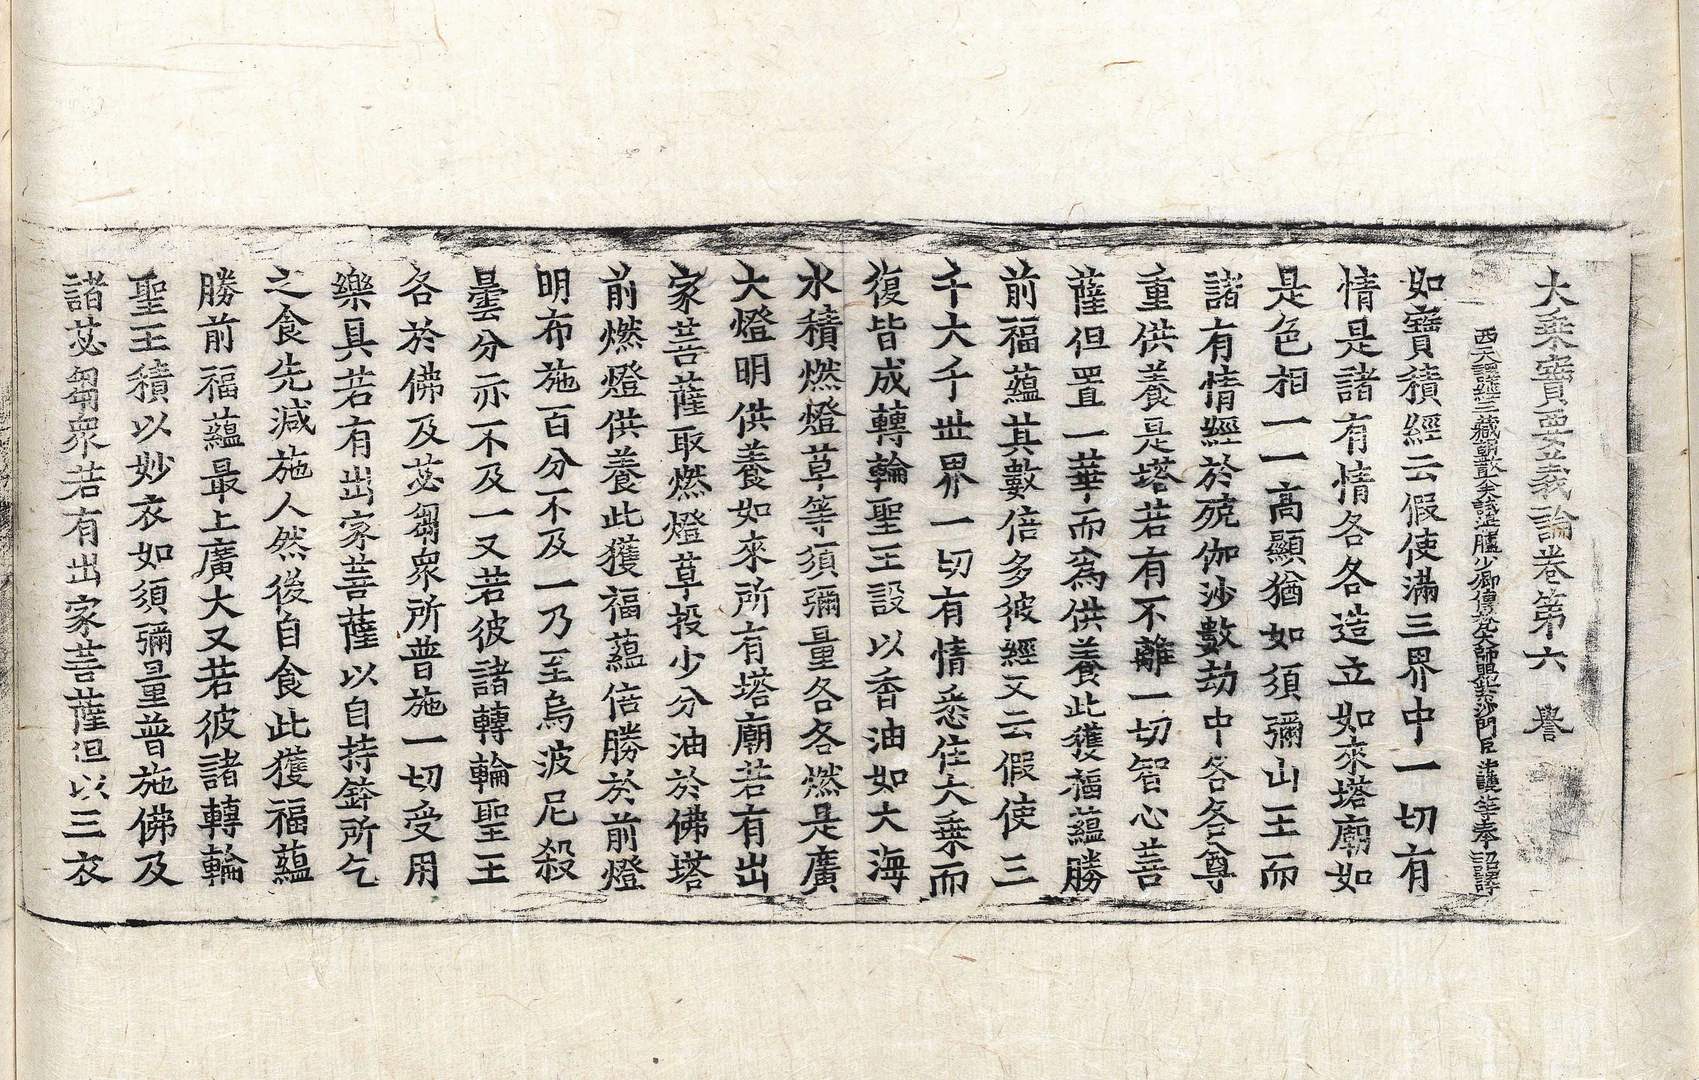 大乘寶要義論卷第六　譽
西天譯經三藏朝散大夫試鴻臚少卿傳梵大師賜紫沙門臣法護等奉詔譯
如寶積經云假使滿三界中一切有
情是諸有情各各造立如來塔廟如
是色相一一高顯猶如須彌山王而
諸有情經於殑伽沙數劫中各各尊
重供養是塔若有不離一切智心菩
薩但置一華而為供養此獲福蘊勝
前福蘊其數倍多彼經又云假使三
千大千世界一切有情悉住大乘而
復皆成轉輪聖王設以香油如大海
水積燃燈草等須彌量各各燃是廣
大燈明供養如來所有塔廟若有出
家菩薩取燃燈草投少分油於佛塔
前燃燈供養此獲福蘊倍勝於前燈
明布施百分不及一乃至烏波尼殺
曇分亦不及一又若彼諸轉輪聖王
各於佛及苾芻眾所普施一切受用
樂具若有出家菩薩以自持鉢所乞
之食先減施人然後自食此獲福蘊
勝前福蘊最上廣大又若彼諸轉輪
聖王積以妙衣如須彌量普施佛及
諸苾芻眾若有出家菩薩但以三衣